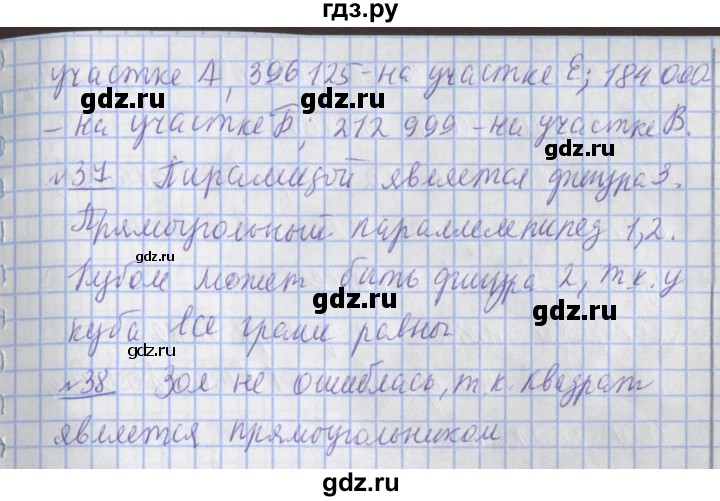 гдз.ру
участке А, 396 125 - на участке Е; 184 020
- на участке Б; 212 999 - на участке В.
№37 Пирамидой является фигура 3.
Прямоугольный параллелепипед 1,2.
Кубом может быть фигура 2, т.к. у
куба все грани равны
№38 Зоя не ошиблась, т.к. квадрат
является прямоугольником
gdz.ru
gdz.ru
gdz.ru
gdz.ru
gdz.ru
gdz.ru
gdz.ru
gdz.ru
gdz.ru
gdz.ru
gdz.ru